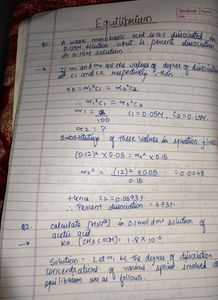 Equilibrium
Q1. A weak monobasic acid is 12% dissociated in
0.05M solution. What is percent dissociation
in 0.15M solution.
→ If α1 and α2 are the values of degree of dissociation
at C1 and C2 respectively, then
Ka = α1²C1 = α2²C2
∴ α1²C1 = α2²C2
α1 = 12/100 C1 = 0.05M, C2 = 0.15M
α2 = ?
substituting of these values in equation gives
(0.12)² × 0.05 = α2² × 0.15
α2² = (.12)² × 0.05 / 0.15 = 0.0048
Hence α2 = 0.0693
∴ Percent dissociation = 6.93%
Q2. calculate [H3O+] in 0.1 mol dm-3 solution of
acetic acid.
→ Ka [CH3COOH] = 1.8 × 10-5
Solution - Let α, be the degree of dissociation
concentrations of various species involved
equilibrium are as follows.